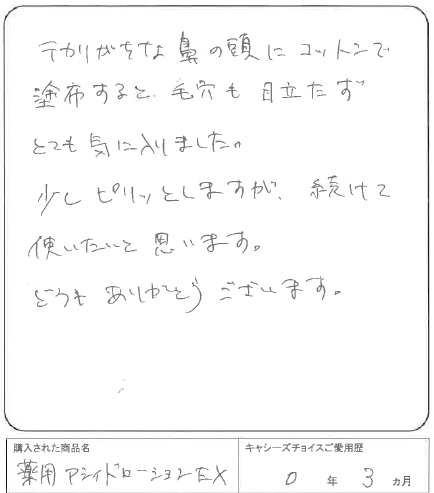 テカリがちな鼻の頭にコットンで
塗布すると、毛穴も目立たず
とても気に入りました。
少しピリッとしますが、続けて
使いたいと思います。
どうもありがとうございます。
購入された商品名
薬用アシィドローションEX
キャシーズチョイスご愛用歴
0年3ヵ月